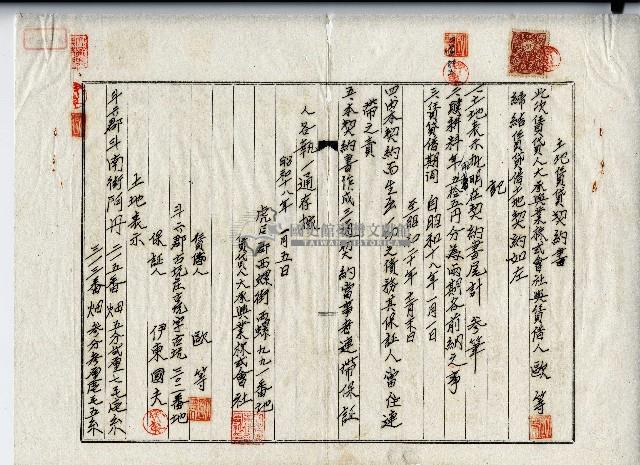 土地賃貸契約書
此次賃貸人大承興業株式會社與賃借人歐等
締結賃貸借土地契約如左
記
一、土地表示批明在契約書尾計 參筆
二、贌耕料年五拾五円分為兩期各前納之事
三、賃貸借期間 自昭和十八年一月一日
至昭和二十年 月末日
四、由本契約而生 之債務其保証人當任連
帶之責
五、本契約書作成三通契約當事者連帶保証
人各執一通存據
昭和十八年一月五日
虎尾郡西螺街西螺九九一番地
賃貸人大承興業株式會社
賃借人 歐等
斗六郡古坑庄古坑字古坑三〇二番地
保証人 伊東國夫
土地表示
斗六郡斗南街阿丹 二一五番 畑 五分貳厘七毛 糸
三一三番 畑 參分參厘 毛五糸
國史館臺灣文獻館
TAIWAN HISTORICA